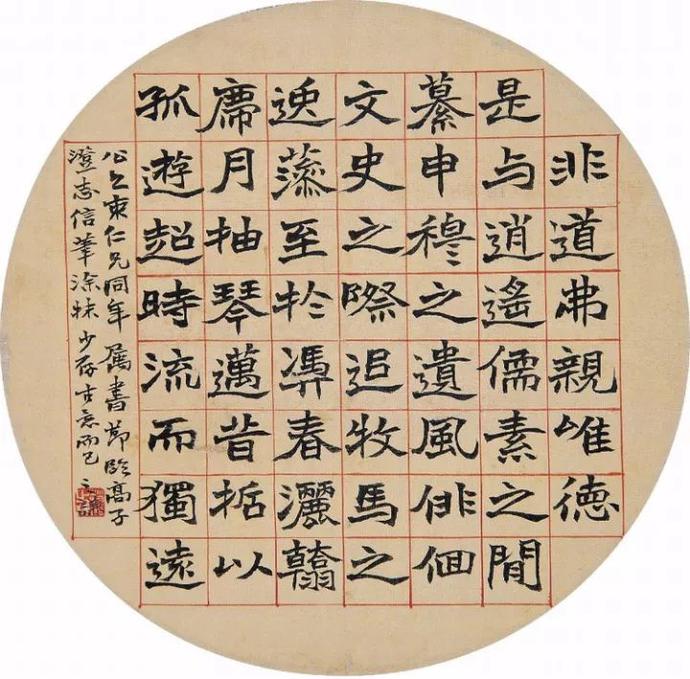 非道弗親唯德
是与逍遙儒素之間
慕申穆之遺風俳佪
文史之際追牧馬之
逸藻至於馮春灑翰
席月抽琴邁昔以
孤遊超時流而獨遠
仁兄同年屬書節臨高子
澄志信筆涂抹少存古意而已